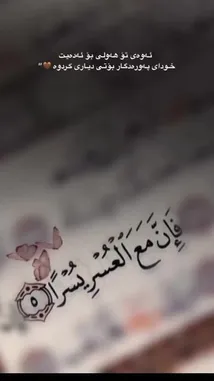 ئەوەی تۆ هەوڵی بۆ ئەدەیت
خودای پەروەردگار بۆتی دیاری کردوە 🤎"
فَإِنَّ مَعَ الْعُسْرِ يُسْرًا ٥